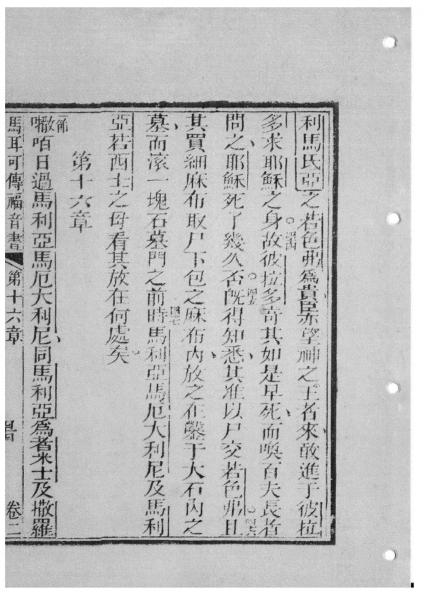 利馬氏亞之若色弗爲貴臣亦望神之王者來敢進于彼拉
多求耶穌之身故彼拉多奇其如是早死而喚百夫長者
問之耶穌死了幾久否旣得知悉其准以尸交若色弗且
其買細麻布取尸下包之麻布內放之在鑿于大石內之
墓而滚一塊石墓門之前時馬利亞馬厄大利尼及馬利
亞若西士之母看其放在何處矣
第十六章
節 嗽咟日過馬利亞馬厄大利尼同馬利亞爲者米士及撒羅
馬耳可傳福音書 第十六章 卷二